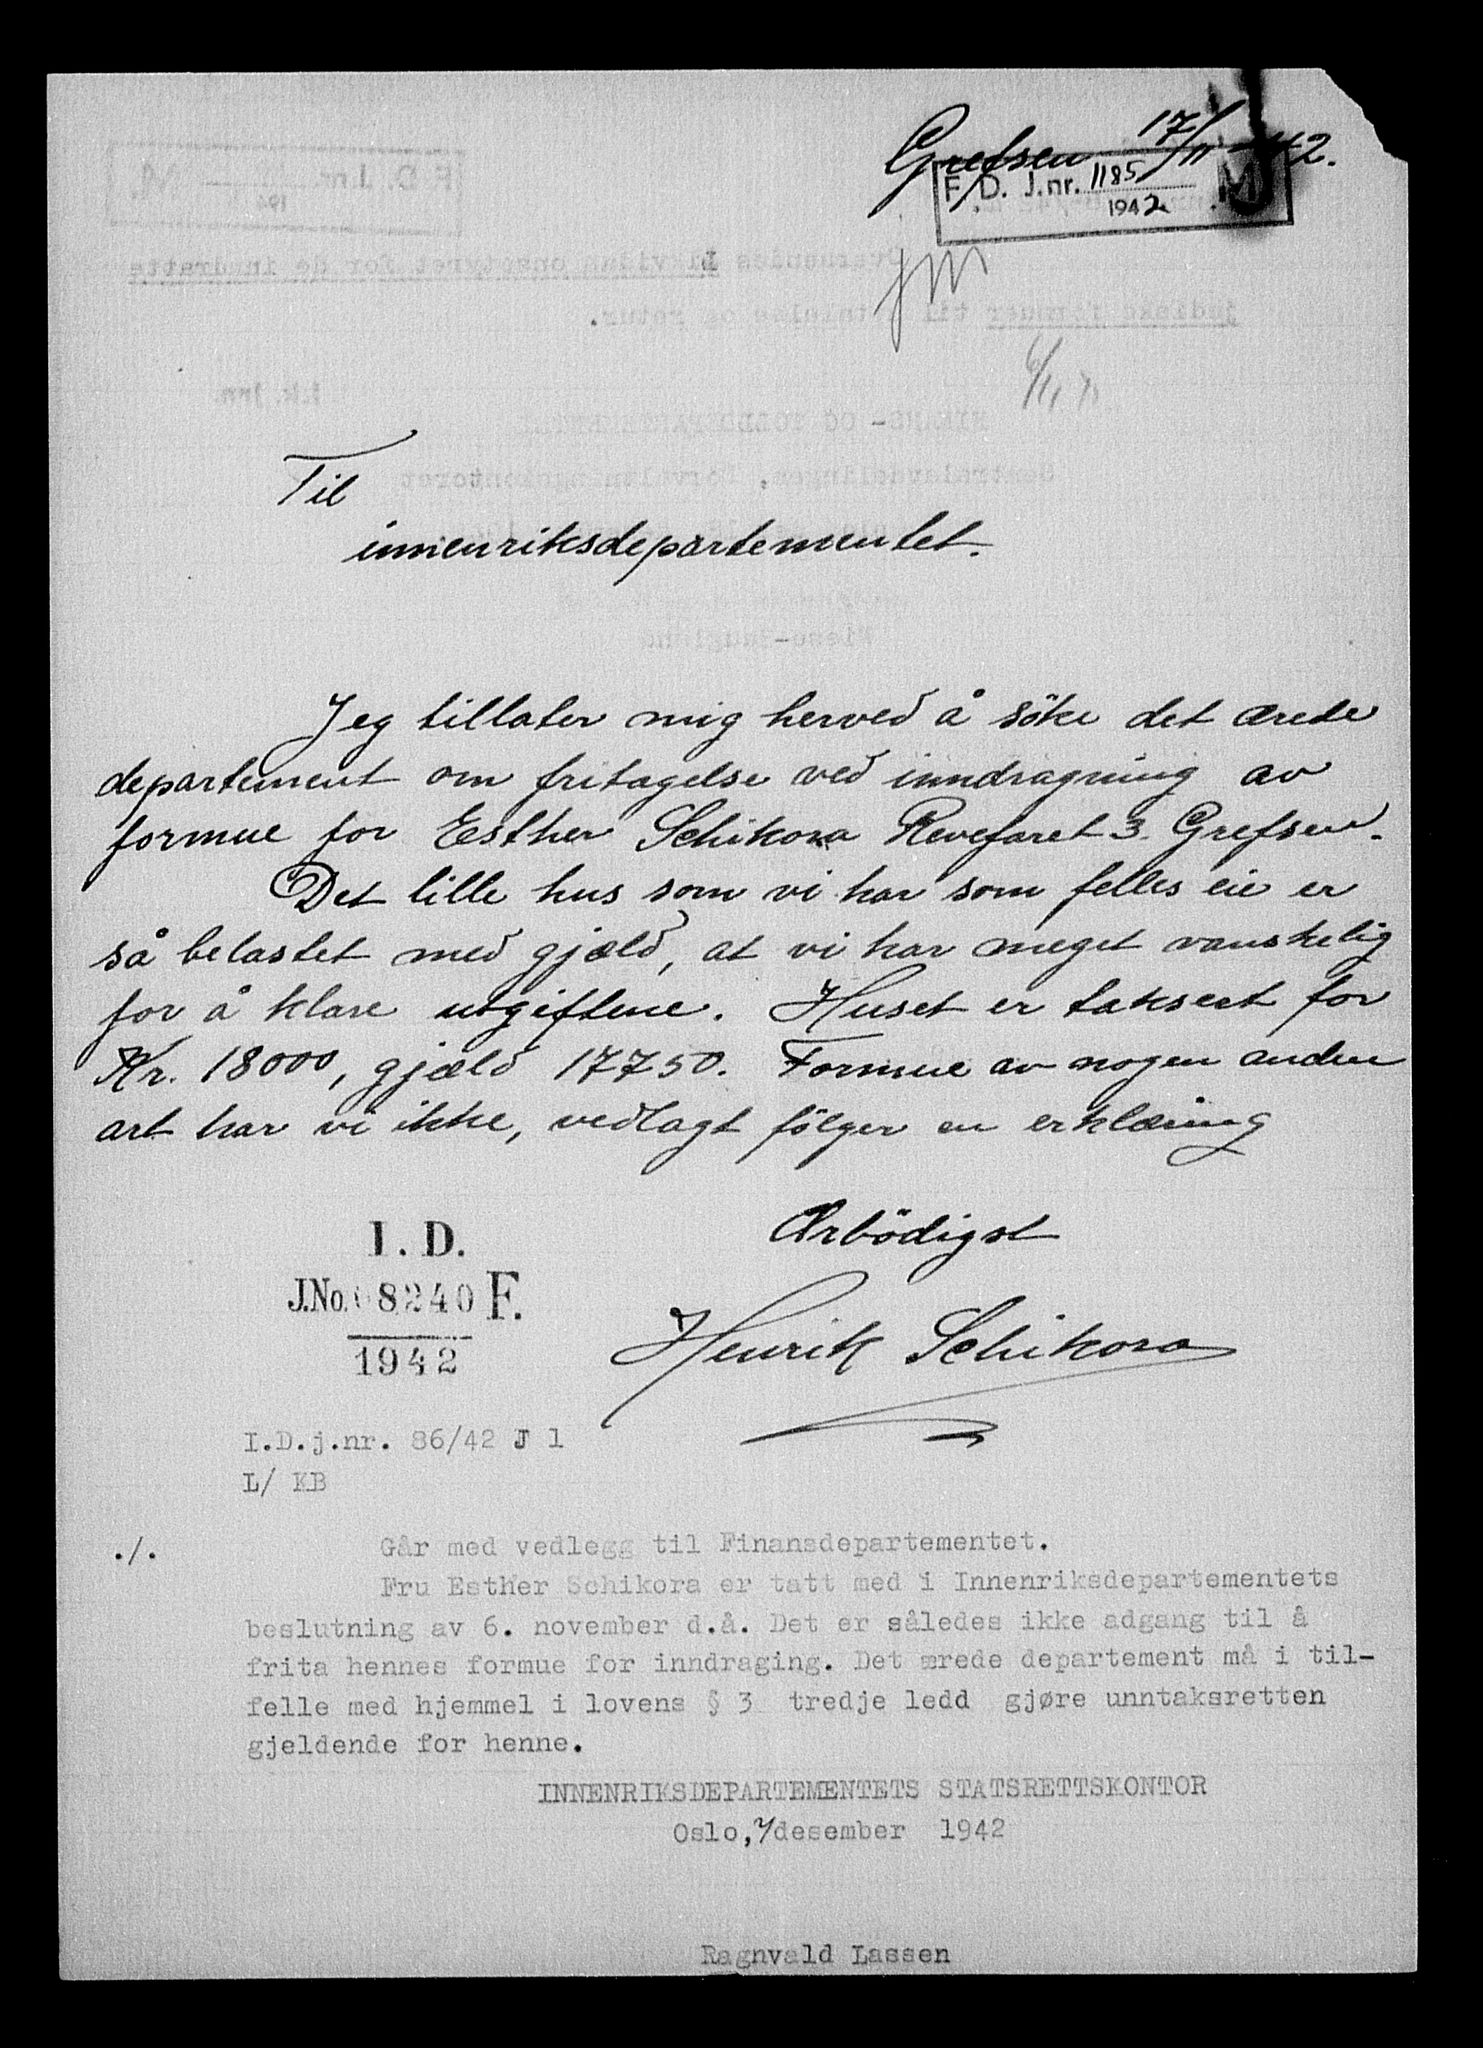 Grefsen 17/11-42.
F. D. J.nr. 1185 M.
1942
Til
innenriksdepartementet.
Jeg tillater mig herved å söke det ærede
departement om fritagelse ved inndragning av
formue for Esther Schikora Revefaret 3. Grefsen.
Det lille hus som vi har som felles eie er
så belastet med gjæld, at vi har meget vanskelig
for å klare utgiftene. Huset er taksert for
Kr. 18000, gjæld 17750. Formue av nogen anden
art har vi ikke, vedlagt fölger en erklæring
Ærbödigst
Henrik Schikora
I. D.
J.No. 8240 F.
1942
I.D.j.nr. 86/42 J 1
L/ KB
./. Går med vedlegg til Finansdepartementet.
Fru Esther Schikora er tatt med i Innenriksdepartementets
beslutning av 6. november d.å. Det er således ikke adgang til å
frita hennes formue for inndraging. Det ærede departement må i til-
felle med hjemmel i lovens § 3 tredje ledd gjøre unntaksretten
gjeldende for henne.
INNENRIKSDEPARTEMENTETS STATSRETTSKONTOR
Oslo, 7/desember 1942
Ragnvald Lassen